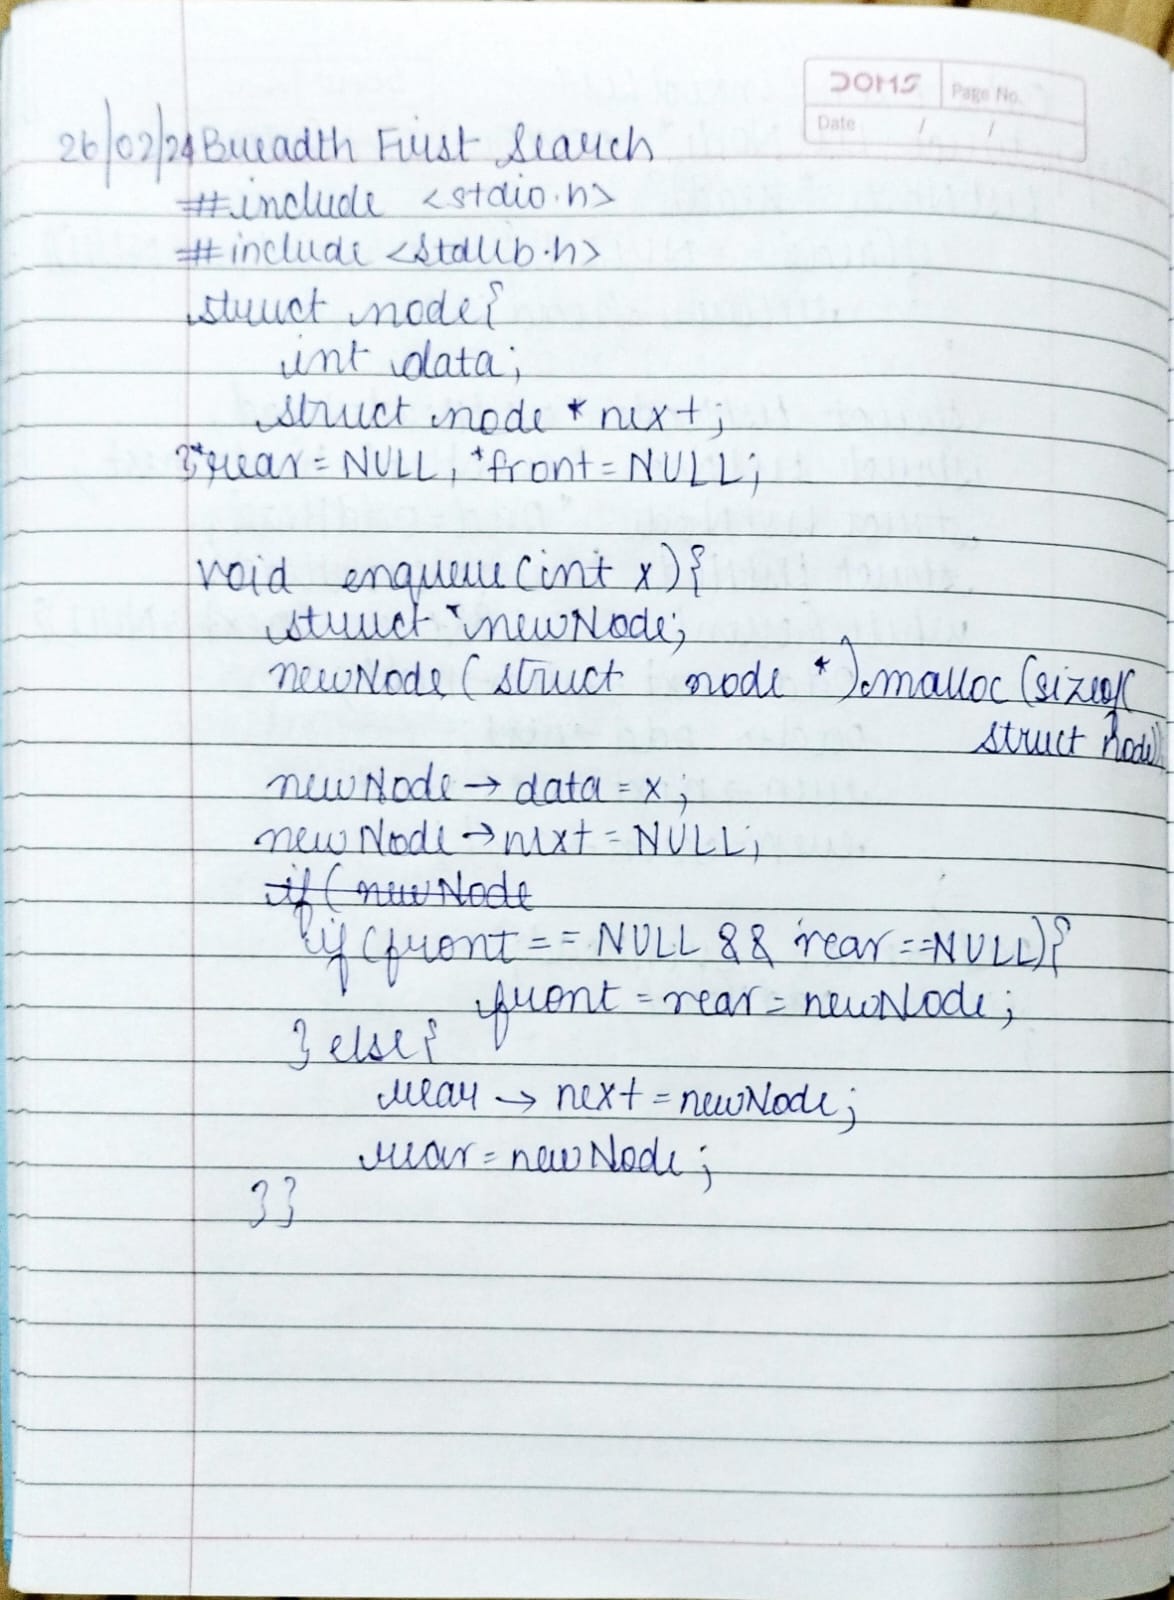 DOMS
Page No.
Date / /
26/02/24 Breadth First Search
#include <stdio.h>
#include <stdlib.h>
struct node{
int data;
struct node * next;
}*rear = NULL, *front = NULL;
void enqueue(int x){
struct *newNode;
newNode (struct node *) malloc (sizeof(
struct node));
newNode → data = x;
newNode → next = NULL;
if (newNode
if (front == NULL && rear == NULL){
front = rear = newNode;
} else{
rear → next = newNode;
rear = newNode;
}}